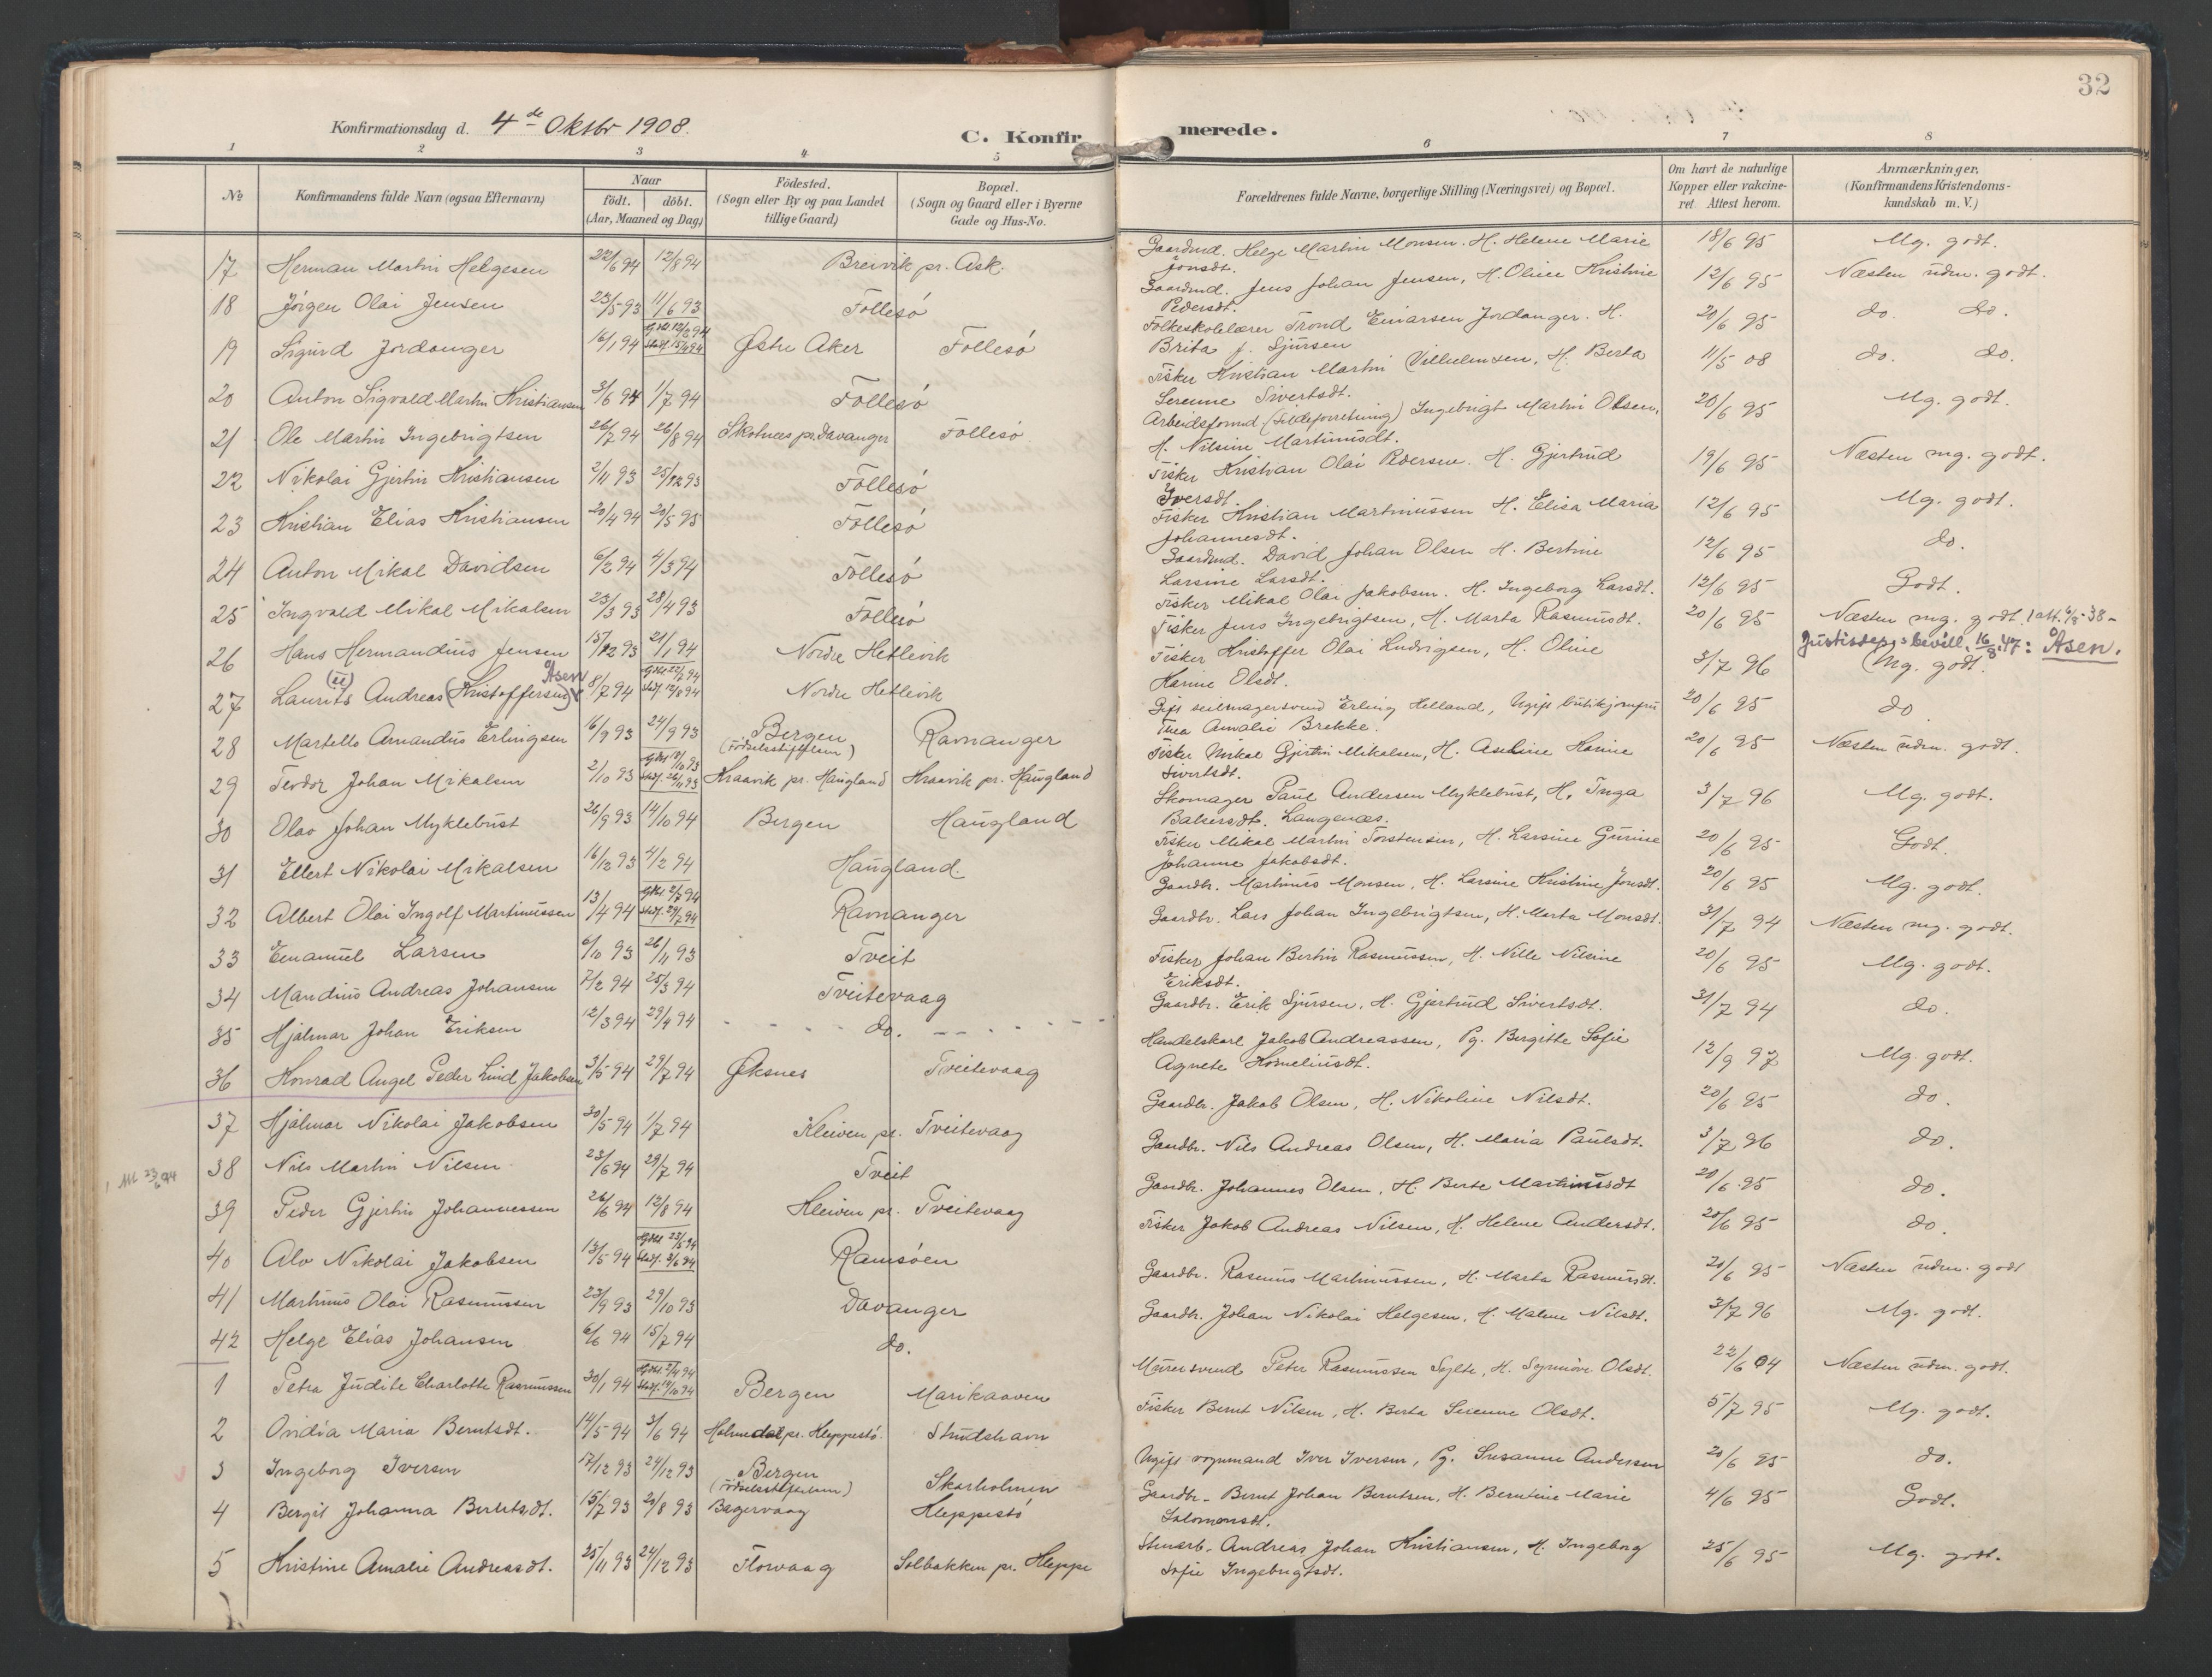 32
Konfirmationsdag d. 4de Oktbr 1908.
C. Konfirmerede.
1 2 3 4 5 6 7 8
№ Konfirmandens fulde Navn (ogsaa Efternavn) Naar födt. döbt. (Aar, Maaned og Dag) Födested. (Sogn eller By og paa Landet tillige Gaard) Bopæl. (Sogn og Gaard eller i Byerne Gade og Hus-No. Forældrenes fulde Navne, borgerlige Stilling (Næringsvei) og Bopæl. Om havt de naturlige Kopper eller vakcineret. Attest herom. Anmærkninger, (Konfirmandens Kristendomskundskab m. V.)
17 Herman Martin Helgesen 22/6 94 12/8 94 Breivik pr. Ask. Gaardmd. Helge Martin Monsen. H. Helene Marie Jonsdt. 18/6 95 Mg. godt.
18 Jörgen Olai Jensen 23/5 93 11/6 93 Follesö Gaardmd. Jens Johan Jensen, H. Oline Kristine Pedersdt. 12/6 95 Næsten udm. godt.
19 Sigurd Jordanger 16/1 94 Gdbt 12/3 94 Stadf. 15/4 94 Østre Aker Follesö Folkeskolelærer Trond Einarsen Jordanger. H. Brita f. Sjursen 20/6 95 do. do.
20 Anton Sigvald Martin Kristiansen 3/6 94 1/7 94 Follesö Fisker Kristian Martin Vilhelmsen, H. Berta Serenne Sivertsdt. 11/5 08 do. do.
21 Ole Martin Ingebrigtsen 26/7 94 26/8 94 Skotnees pr. Davanger Follesö Arbeidsformd. (Sildeforretning) Ingebrigt Martin Olsen, H. Nilsine Martinusdt. 20/6 95 Mg. godt.
22 Nikolai Gjertin Kristiansen 2/11 93 25/12 93 Follesö Fisker Kristian Olai Pedersen. H. Gjertrud Iversdt. 19/6 95 Næsten mg. godt.
23 Kristian Elias Kristiansen 20/4 94 20/5 95 Follesö Fisker Kristian Martinussen H. Elisa Maria Johannesdt. 12/6 95 Mg. godt.
24 Anton Mikal Davidsen 6/2 94 4/3 94 Follesö Gaardmd. David Johan Olsen H. Bertine Larsine Larsdt. 12/6 95 do.
25 Ingvald Mikal Mikalsen 23/3 93 28/4 93 Follesö Fisker Mikal Olai Jakobsen. H. Ingeborg Larsdt. 12/6 95 Godt.
26 Hans Hermandius Jensen 15/12 93 21/1 94 Nordre Hetlevik Fisker Jens Ingebrigtsen, H. Marta Rasmusdt. 20/6 95 Næsten mg. godt. 1 att. 6/8-38-
27 Laurits (ii) Andreas (Kristoffersen) Åsen 8/7 94 Gdbt 22/7 94 Stadf. 12/8 94 Nordre Hetlevik Fisker Kristoffer Olai Ludvigsen, H. Oline Karine Olsdt. 3/7 96 Justisdep.s bevill. 16/8.47: Åsen. (Mg. godt.
28 Martello Amandus Erlingsen 16/9 93 24/9 93 Bergen (Födselsstiftelsen) Ravnanger Gift seilmagersvend Erling Helland, Ugift butikjomfru Thea Amalie Brekke. 20/6 95 do
29 Teodor Johan Mikalsen 2/10 93 Gdbt 10/10 93 Stadf. 26/11 93 Kraavik pr. Haugland Kraavik pr. Haugland Fisker Mikal Gjertin Mikalsen, H. Aseline Karine Sivertsdt. 20/6 95 Næsten udm. godt.
30 Olav Johan Myklebust 26/9 93 14/10 94 Bergen Haugland Skomager Paul Andersen Myklebust, H. Inga Balsersdt. Langenæs. 3/7 96 Mg. godt.
31 Ellert Nikolai Mikalsen 16/12 93 4/2 94 Haugland. Fisker Mikal Martin Torstensen, H. Larsine Gurine Johanne Jakobsdt. 20/6 95 Godt.
32 Albert Olai Ingolf Martinussen 13/4 94 Gdbt 2/7 94 Stadf. 29/7 94 Ravnanger Gaardbr. Martinus Monsen, H. Larsine Kristine Jonsdt. 20/6 95 Mg. godt.
33 Emanuel Larsen 6/10 93 26/11 93 Tveit Gaardbr. Lars Johan Ingebrigtsen, H. Marta Monsdt. 31/7 94 Næsten mg. godt.
34 Mandius Andreas Johansen 7/2 94 25/3 94 Tveitevaag Fisker Johan Bertin Rasmussen, H. Nille Nilsine Eriksdt. 20/6 95 Mg. godt.
35 Hjalmar Johan Eriksen 12/3 94 29/4 94 do. Gaardbr. Erik Sjursen, H. Gjertrud Sivertsdt. 31/7 94 do.
36 Konrad Angel Peder Lind Jakobsen 3/5 94 29/7 94 Øksnes Tveitevaag Handelskarl Jakob Andreassen, Pg. Birgitte Sofie Agnete Korneliusdt. 12/9 97 Mg. godt.
37 Hjalmar Nikolai Jakobsen 30/5 94 1/7 94 Kleiven pr. Tveitevaag Gaardbr. Jakob Olsen, H. Nikoline Nilsdt. 20/6 95 do.
38 Nils Martin Nilsen 23/6 94 29/7 94 Tveit Gaardbr. Nils Andreas Olsen, H. Maria Paulsdt. 3/7 96 do.
39 Peder Gjertin Johannessen 26/6 94 12/8 94 Kleiven pr. Tveitevaag Gaardbr. Johannes Olsen, H. Berte Martinusdt 20/6 95 do.
40 Alv Nikolai Jakobsen 13/5 94 Gdbt 23/5 94 Stadf. 3/6 94 Ramsöen Fisker Jakob Andreas Nilsen, H. Helene Andersdt. 20/6 95 do.
41 Martinus Olai Rasmussen 23/9 93 29/10 93 Davanger Gaardbr. Rasmus Martinussen, H. Marta Rasmusdt. 20/6 95 Næsten udm. godt
42 Helge Elias Johansen 6/6 94 15/7 94 do. Gaardbr. Johan Nikolai Helgesen, H. Malene Nilsdt. 3/7 96 Mg. godt.
1 Petra Judite Charlotte Rasmussen 30/1 94 Gdbt 2/4 94 Stadf. 14/10 94 Bergen Marikaaven Murersvend Peter Rasmussen Sylte, H. Synnöve Olsdt. 22/6 04 Næsten udm. godt.
2 Ovidia Maria Berntsdt. 14/5 94 3/6 94 Holmedal pr. Kleppestö. Studshavn Fisker Bernt Nilsen, H. Berta Serenne Olsdt. 5/7 95 Mg. godt.
3 Ingeborg Iversen 17/12 93 24/12 93 Bergen (Födselsstiftelsen) Skarholmen Ugift vognmand Iver Iversen, Pg. Susanne Andersen 20/6 95 do.
4 Bergit Johanna Berntsdt. 15/7 93 20/8 93 Bagervaag Kleppestö Gaardbr. Bernt Johan Berntsen, H. Berntine Marie Salomonsdt. 4/6 95 Godt.
5 Kristine Amalie Andreasdt. 25/11 93 24/12 93 Florvaag Solbakken pr. Kleppe Stenarb. Andreas Johan Kristiansen, H. Ingeborg Sofie Ingebrigtsdt. 25/6 95 Mg. godt.